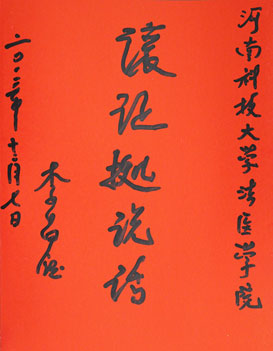 河南科技大学法医学院
让证据说话
李昌钰
二〇一三年十二月七日